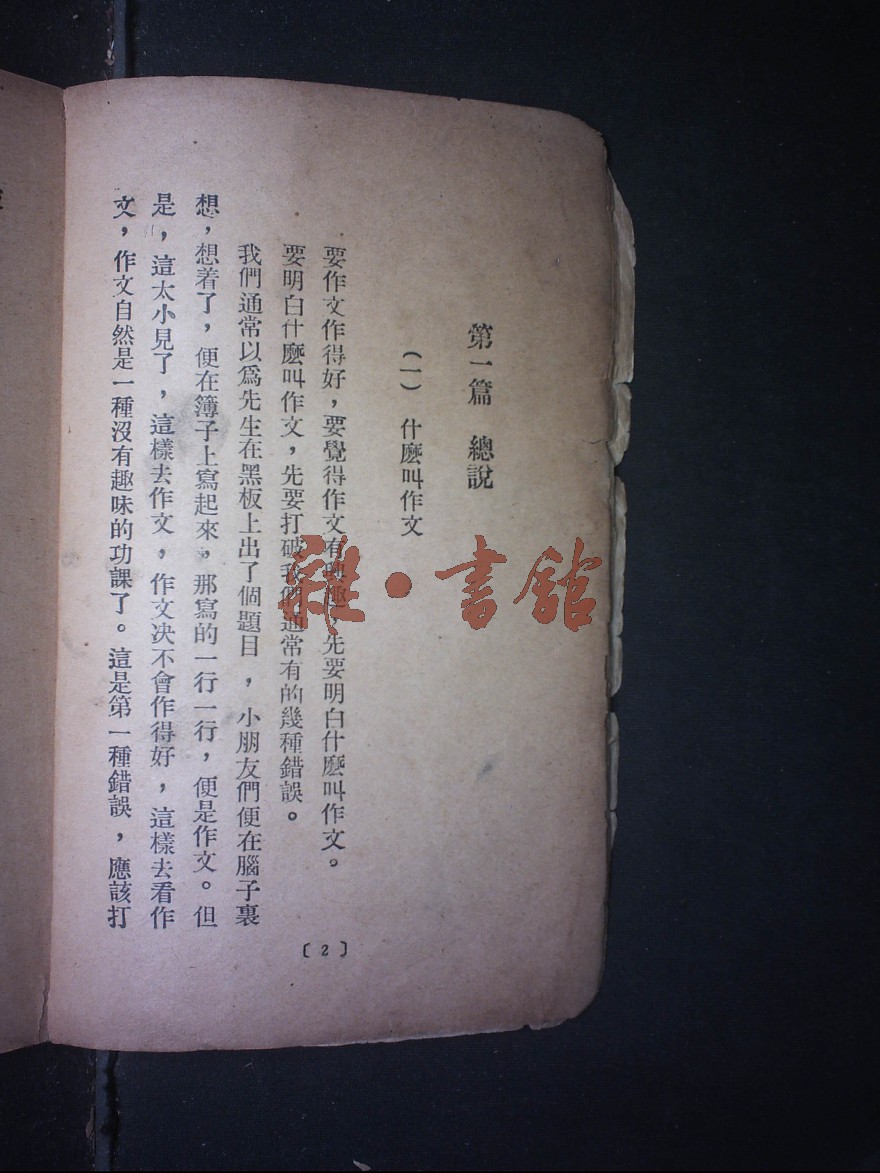 第一篇　總說
（一）　什麽叫作文
要作文作得好，要覺得作文有興趣，先要明白什麽叫作文。
要明白什麽叫作文，先要打破我們通常有的幾種錯誤。
我們通常以爲先生在黑板上出了個題目，小朋友們便在腦子裏
想，想着了，便在簿子上寫起來，那寫的一行一行，便是作文。但
是，這太小見了，這樣去作文，作文决不會作得好，這樣去看作
文，作文自然是一種沒有趣味的功課了。這是第一種錯誤，應該打
〔2〕
雜·書館